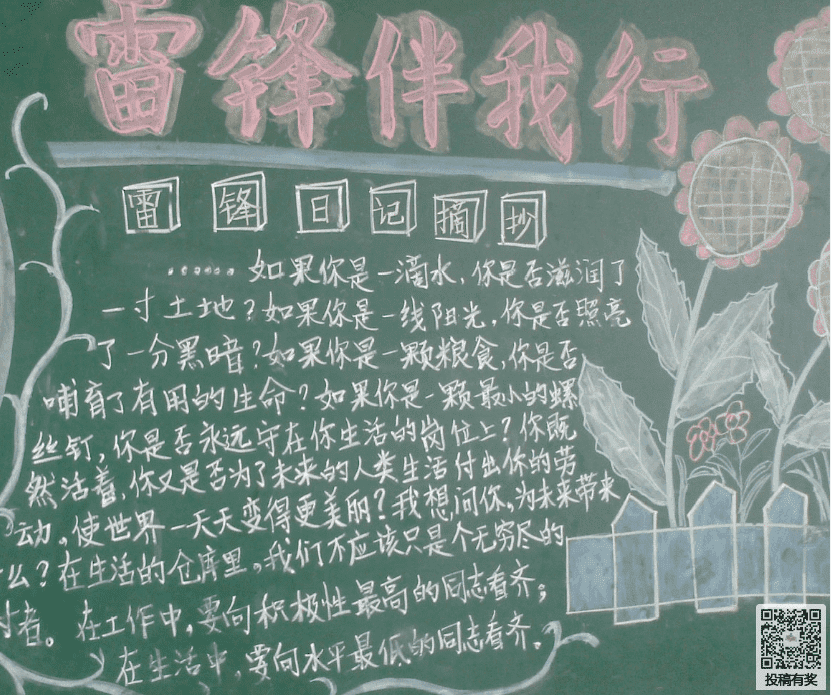 雷锋伴我行
雷锋日记摘抄
……如果你是一滴水,你是否滋润了
一寸土地?如果你是一线阳光,你是否照亮
了一分黑暗?如果你是一颗粮食,你是否
哺育了有用的生命?如果你是一颗最小的螺
丝钉,你是否永远守在你生活的岗位上?你既
然活着,你又是否为了未来的人类生活付出你的劳
动,使世界一天天变得更美丽?我想问你,为未来带来
么?在生活的仓库里,我们不应该只是个无穷尽的
付者。在工作中,要向积极性最高的同志看齐;
在生活中,要向水平最低的同志看齐。
投稿有奖